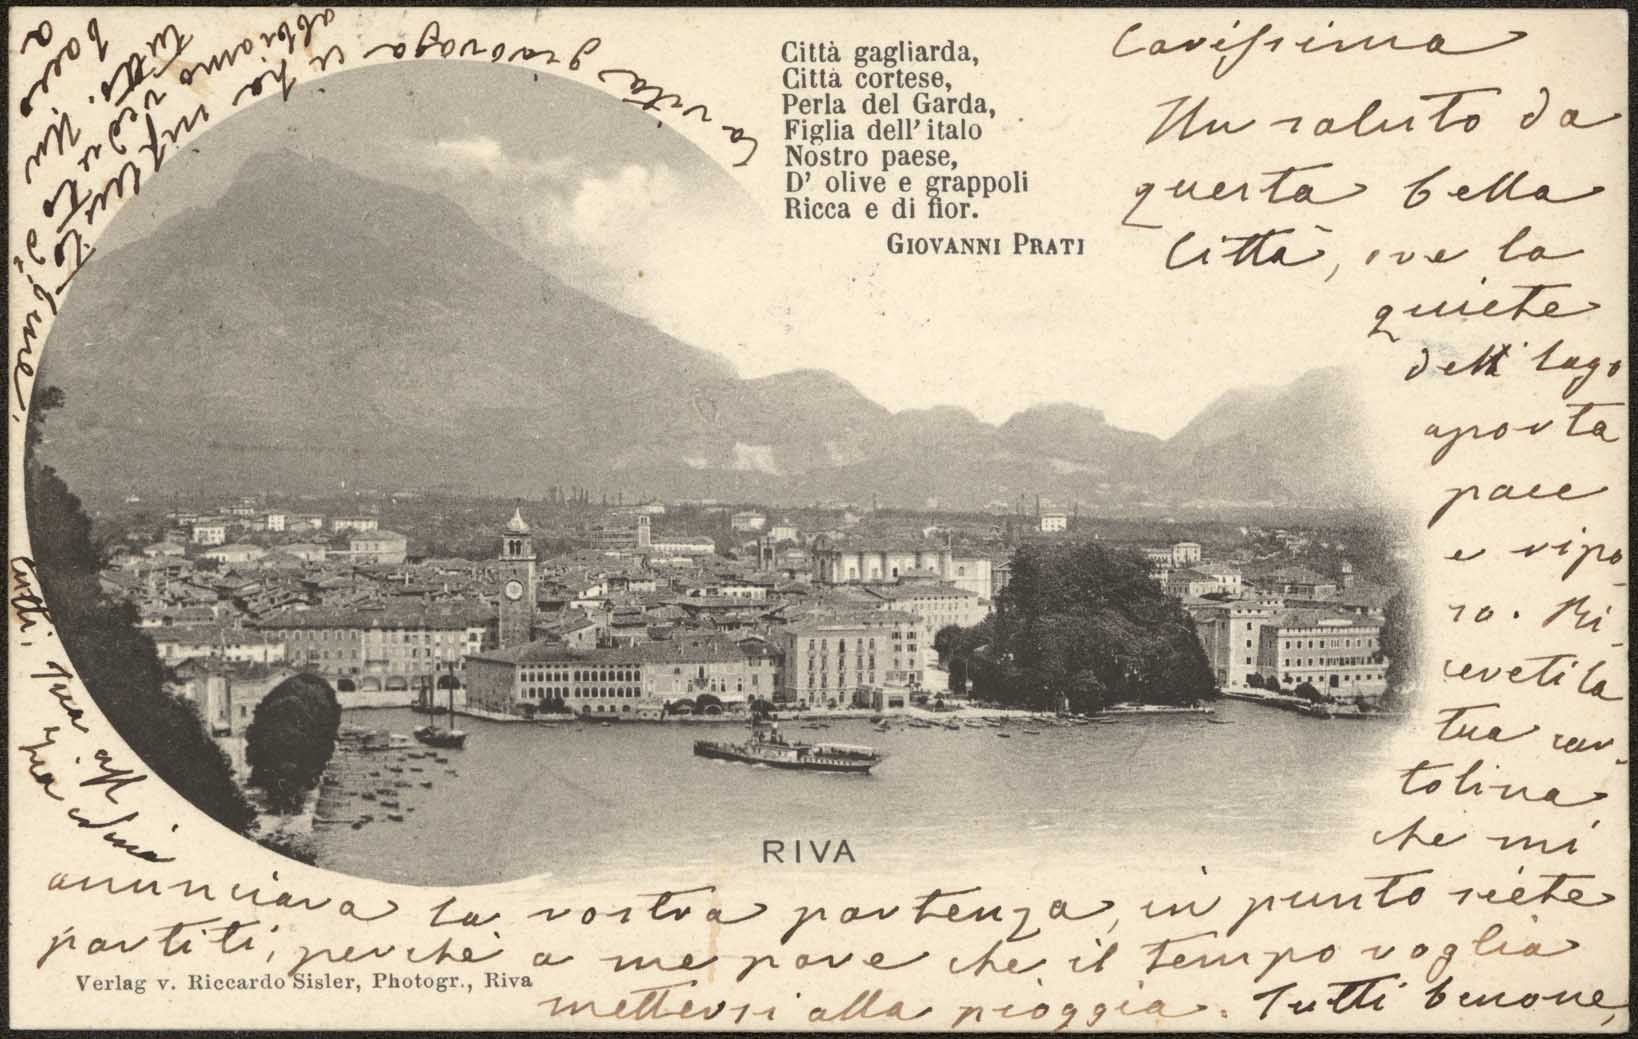 Città gagliarda,
Città cortese,
Perla del Garda,
Figlia dell' italo
Nostro paese,
D' olive e grappoli
Ricca e di fior.
GIOVANNI PRATI
Carissima
Un saluto da
questa bella
Città, ove la
quiete
del lago
aporta
pace
e ripo-
so. Ri-
cevetti la
tua car-
tolina
che mi
anunciava la vostra partenza, in punto siete
partiti, perchè a me pare che il tempo voglia
mettersi alla pioggia. Tutti benone,
la vita girovaga
ci ha
abbiamo veduto
tutto. Un
bacio a
tutti.
RIVA
Verlag v. Riccardo Sisler, Photogr., Riva